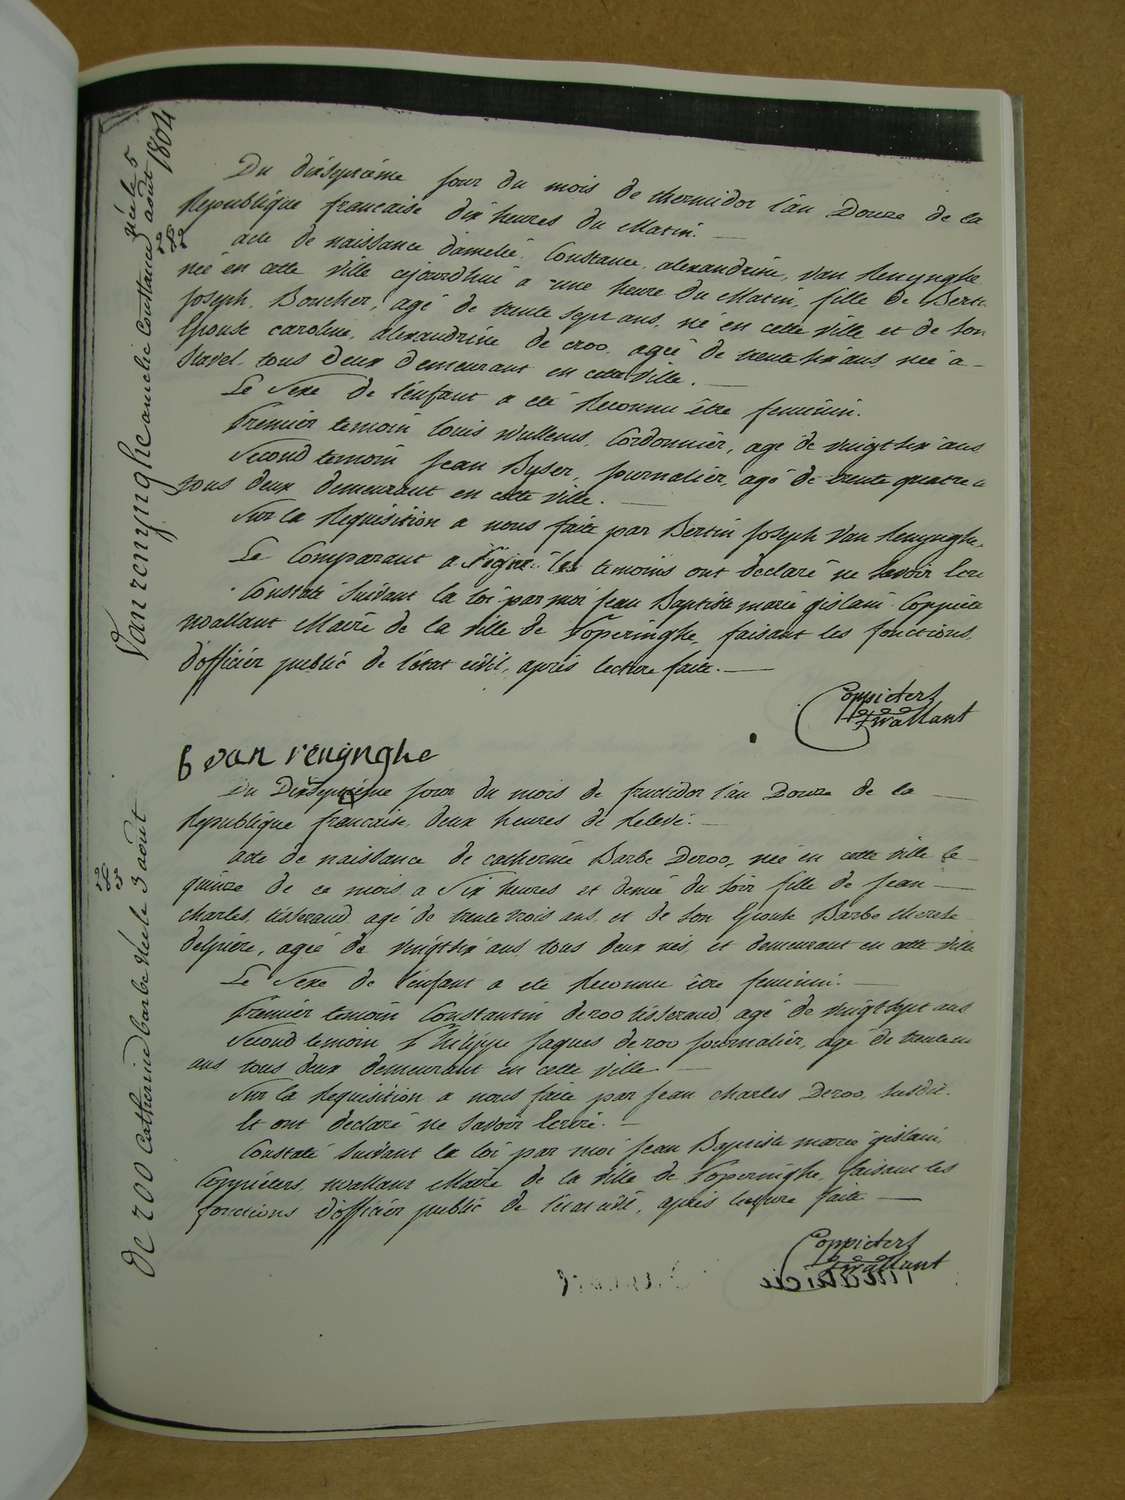 Van renynghe amelie Constance née le 5 août 1804
Du dixseptième jour du mois de thermidor l'an Douze de la
Republique francaise dix heures du Matin. —
acte de naissance d'amelie, Constance, alexandrine, van Renynghe
née en cette ville cejourdhui a une heure du Matin, fille de Bert
Joseph, Boucher, agé de trente sept ans, né en cette ville et de son
Epouse caroline, alexandrine de croo, agée de trente six ans née à
Stavel, tous deux demeurant en cette ville. —
Le Sexe de l'enfant a été Reconnu être feminin.
Premier temoin louis Wullems, Cordonnier, agé de vingt six ans
Second temoin Jean Dyser, journalier, agé de trente quatre a
tous deux demeurant en cette ville. —
Sur la Requisition a nous faite par Bertin Joseph Van Renynghe.
Le Comparant a Signé les temoins ont declaré ne Savoir
Constaté Suivant la loi par moi Jean Baptiste marie gislain Coppiete
wallant Maire de la Ville de Poperinghe, faisant les fonctions
d'officier public de l'état civil, après lecture faite. —
Coppieters
wallant
b van renynghe
de roo Catherine barbe Née le 3 août
Du Dixseptième jour du mois de fructidor l'an Douze de la —
Republique francaise, deux heures de Relevé. —
acte de naissance de catherine Barbe Deroo, née en cette ville le
quinze de ce mois a Six heures et demie du Soir fille de Jean —
charles, tisserand agé de trente trois ans, et de Son Epouse Barbe
delpière, agée de vingt six ans tous deux nés, et demeurant en cette ville
Le Sexe de l'enfant a été Reconnu être feminin. —
Premier temoin Constantin deroo tisserand agé de vingt sept ans
Second temoin Philippe Jaques deroo journalier, agé de
ans tous deux demeurant en cette ville —
Sur la Requisition a nous faite par Jean charles Deroo, susdit.
Et ont declaré ne Savoir Ecrire. —
Constaté Suivant la loi par moi Jean Baptiste marie gislain
Coppieters, wallant Maire de la Ville de Poperinghe, faisant les
fonctions d'officier public de l'état civil, après lecture faite —
Coppieters
wallant